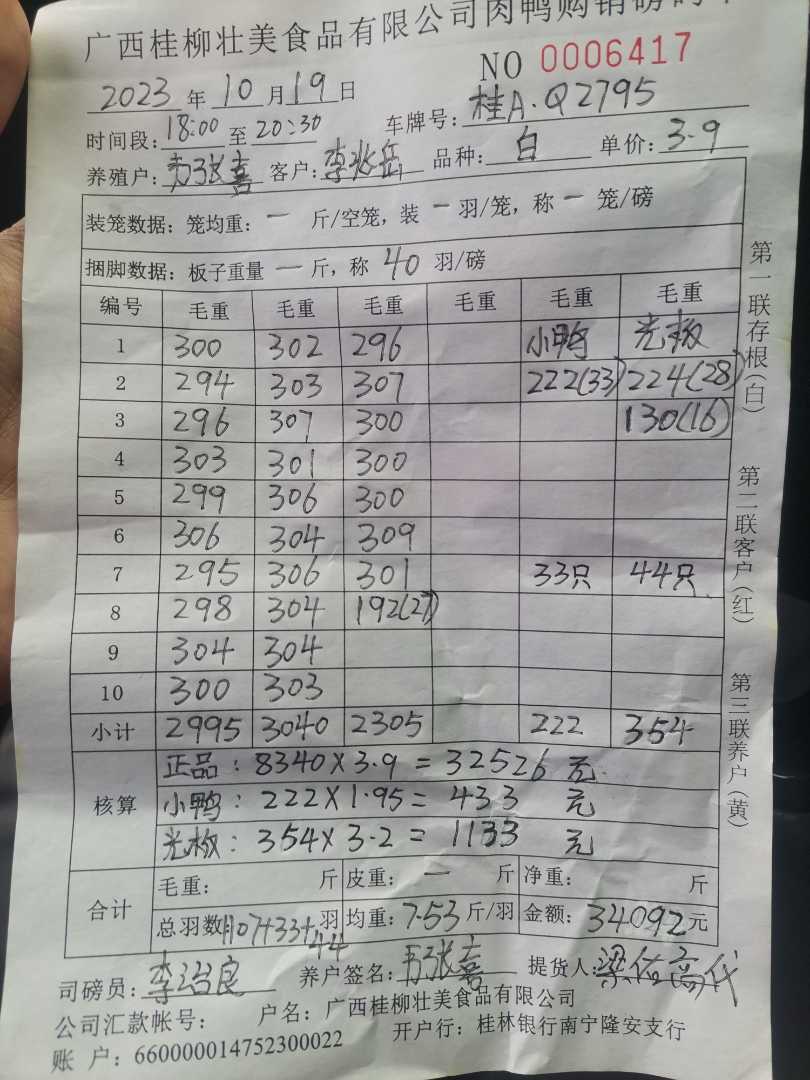 广西桂柳壮美食品有限公司肉鸭购销磅码单
NO 0006417
2023 年 10 月 19 日
时间段: 18:00 至 20:30 车牌号: 桂A·Q2795
养殖户: 韦张喜 客户: 李兆岳 品种: 白 单价: 3.9
装笼数据: 笼均重: 一 斤/空笼, 装 一 羽/笼, 称 一 笼/磅
捆脚数据: 板子重量 一 斤, 称 40 羽/磅
编号 毛重 毛重 毛重 毛重 毛重 毛重
1 300 302 296 小鸭 光板
2 294 303 307 222(33) 224(28)
3 296 307 300 130(16)
4 303 301 300
5 299 306 300
6 306 304 309
7 295 306 301 33只 44只
8 298 304 192(27)
9 304 304
10 300 303
小计 2995 3040 2305 222 354
核算
正品: 8340×3.9=32526 元
小鸭: 222×1.95=433 元
光板: 354×3.2=1133 元
合计
毛重: 斤 皮重: 一 斤 净重: 斤
总羽数 1107+33+44 羽 均重: 7.53 斤/羽 金额: 34092 元
司磅员: 李治良 养户签名: 韦张喜 提货人: 梁佑高代
公司汇款帐号: 户名: 广西桂柳壮美食品有限公司
账 户: 660000014752300022 开户行: 桂林银行南宁隆安支行
第一联存根(白)
第二联客户(红)
第三联养户(黄)